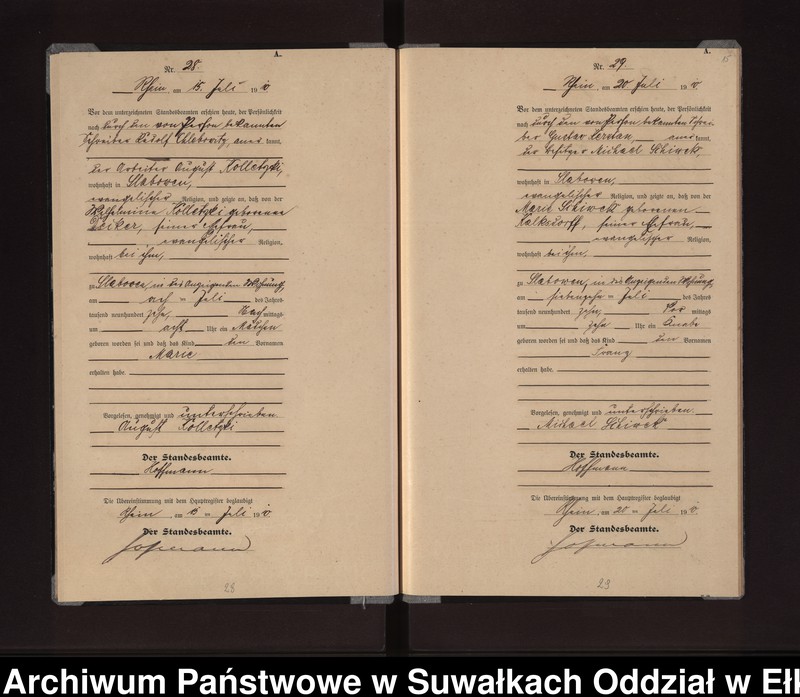 A.
Nr. 28.
Rhein, am 15. Juli 1910.
Vor dem unterzeichneten Standesbeamten erschien heute, der Persönlichkeit
nach durch den von Person bekannten
Schreiber Rudolf Chlebowitz aner kannt,
der Arbeiter August Kolletzki,
wohnhaft in Slabowen,
evangelischer Religion, und zeigte an, daß von der
Wilhelmine Kolletzki geborenen
seiner Ehefrau,
evangelischer Religion,
wohnhaft bei ihm,
zu Slabowen, in des Anzeigenden Wohnung,
am acht = Juli des Jahres
tausend neunhundert zehn, Nachmittags
um acht Uhr ein Mädchen
geboren worden sei und daß das Kind den Vornamen
Marie
erhalten habe.
Vorgelesen, genehmigt und unterschrieben
August Kolletzki
Der Standesbeamte.
Hoffmann
Die Übereinstimmung mit dem Hauptregister beglaubigt
Rhein, am 15 = Juli 1910.
Der Standesbeamte.
Hoffmann
28
A.
15
Nr. 29
Rhein, am 20. Juli 1910.
Vor dem unterzeichneten Standesbeamten erschien heute, der Persönlichkeit
nach durch den von Person bekannten Schrei-
ber Gustav aner kannt,
der Besitzer Michael Schiwek,
wohnhaft in Slabowen,
evangelischer Religion, und zeigte an, daß von der
Marie Schiwek geborenen
Kalksdorff, seiner Ehefrau,
evangelischer Religion,
wohnhaft bei ihm,
zu Slabowen, in des Anzeigenden Wohnung,
am siebenzehn = Juli des Jahres
tausend neunhundert zehn, Vor mittags
um zehn Uhr ein Knabe
geboren worden sei und daß das Kind den Vornamen
Franz
erhalten habe.
Vorgelesen, genehmigt und unterschrieben.
Michael Schiwek
Der Standesbeamte.
Hoffmann
Die Übereinstimmung mit dem Hauptregister beglaubigt
Rhein, am 20 = Juli 1910.
Der Standesbeamte.
Hoffmann
29
Archiwum Państwowe w Suwałkach Oddział w Eł